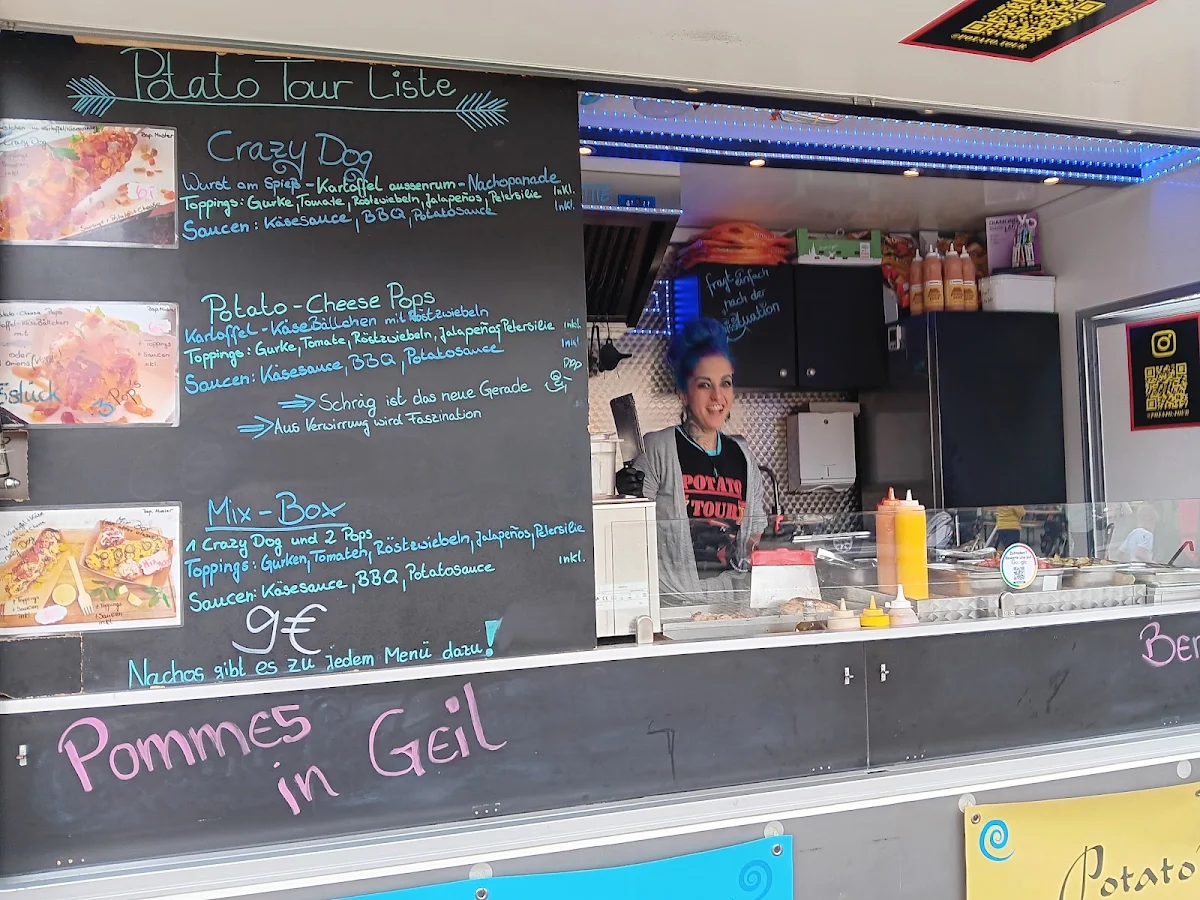 Potato Tour Liste
Crazy Dog
Wurst am Spieß - Kartoffel aussenrum - Nachopanade
Toppings: Gurke, Tomate, Röstzwiebeln, Jalapeños, Petersilie Inkl.
Saucen: Käsesauce, BBQ, Potatosauce Inkl.
Potato-Cheese Pops
Kartoffel-KäseBällchen mit Röstzwiebeln
Toppings: Gurke, Tomate, Röstzwiebeln, Jalapeños, Petersilie inkl.
Saucen: Käsesauce, BBQ, Potatosauce Inkl
Schräg ist das neue Gerade
Aus Verwirrung wird Faszination
Mix-Box
1 Crazy Dog und 2 Pops
Toppings: Gurken, Tomaten, Röstzwiebeln, Jalapeños, Petersilie
Saucen: Käsesauce, BBQ, Potatosauce inkl.
9€
Nachos gibt es zu jedem Menü dazu!
Pommes
in Geil
fragt einfach
nach der
POTATO
TOUR
@POTATO.TOUR
@POTATO.TOUR
Google
Ber
Potato